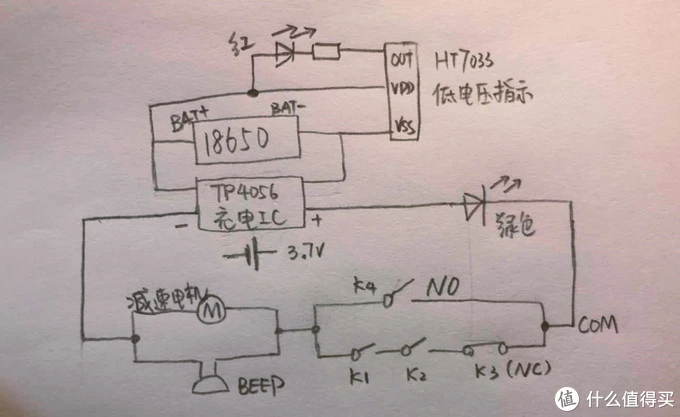 红
OUT
HT7033
VDD
低电压指示
VSS
BAT+
BAT-
18650
TP4056
充电IC
-
+
绿色
3.7V
减速电机
M
K4
NO
COM
BEEP
K1
K2
K3 (NC)
值 什么值得买